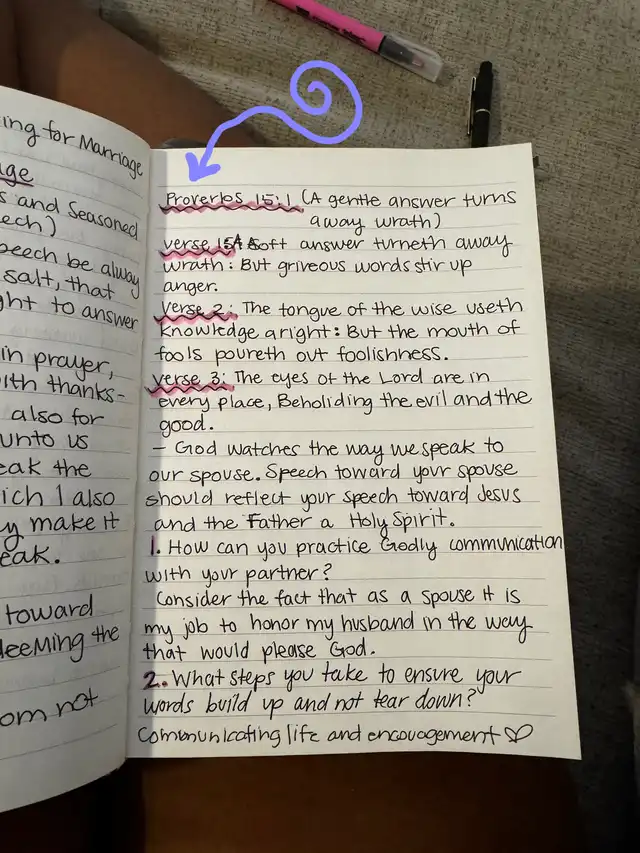 ing for Marriage
age
s and Seasoned
eech)
peech be alway
salt, that
ght to answer
in prayer,
ith thanks-
also for
unto us
eak the
ich I also
y make it
eak.
toward
deeming the
om not
Proverbs 15:1 (A gentle answer turns
away wrath)
verse 15A soft answer turneth away
wrath: But griveous words stir up
anger.
Verse 2: The tongue of the wise useth
knowledge aright: But the mouth of
fools poureth out foolishness.
verse 3: The eyes of the Lord are in
every place, Beholiding the evil and the
good.
- God watches the way we speak to
our spouse. Speech toward your spouse
should reflect your speech toward Jesus
and the Father a Holy Spirit.
1. How can you practice Godly communication
with your partner?
Consider the fact that as a spouse it is
my job to honor my husband in the way
that would please God.
2. What steps you take to ensure your
words build up and not tear down?
Communicating life and encouagement ♡